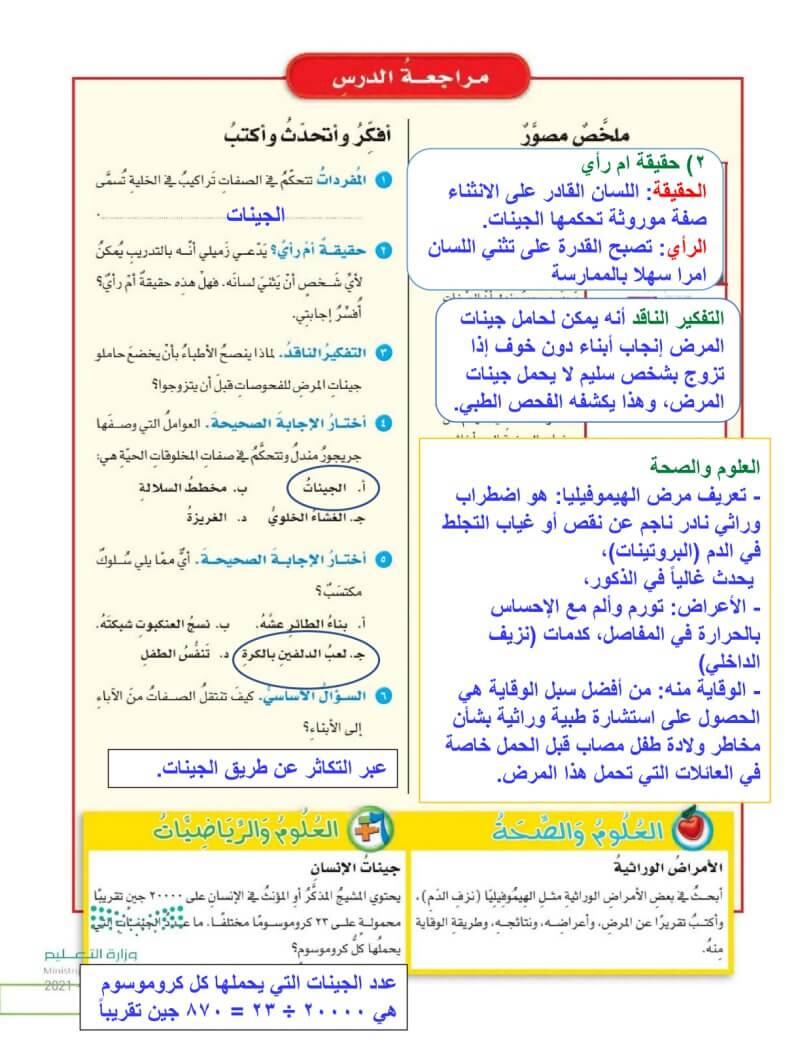 مراجعةُ الدرسِ
ملخَّصٌ مصوَّرٌ
٢) حقيقة ام رأي
الحقيقة: اللسان القادر على الانثناء
صفة موروثة تحكمها الجينات.
الرأي: تصبح القدرة على تثني اللسان
امرا سهلا بالممارسة
التفكير الناقد أنه يمكن لحامل جينات
المرض إنجاب أبناء دون خوف إذا
تزوج بشخص سليم لا يحمل جينات
المرض، وهذا يكشفه الفحص الطبي.
العلوم والصحة
- تعريف مرض الهيموفيليا: هو اضطراب
وراثي نادر ناجم عن نقص أو غياب التجلط
في الدم (البروتينات)،
يحدث غالياً في الذكور،
- الأعراض: تورم وألم مع الإحساس
بالحرارة في المفاصل، كدمات (نزيف
الداخلي)
- الوقاية منه: من أفضل سبل الوقاية هي
الحصول على استشارة طبية وراثية بشأن
مخاطر ولادة طفل مصاب قبل الحمل خاصة
في العائلات التي تحمل هذا المرض.
أفكِّرُ وأتحدَّثُ وأكتبُ
١ المُفرداتُ تتحكّمُ في الصفاتِ تَراكيبُ في الخليةِ تُسمَّى
الجينات
٢ حقيقـةٌ أمْ رأيٌ؟ يَدّعـي زَميلي أنَّـه بالتدريبِ يُمكنُ
لأيِّ شَـخصٍ أنْ يَثنيَ لسانَه. فهلْ هذِه حقيقةٌ أمْ رأيٌ؟
أُفسِّرُ إجابتي.
٣ التفكيرُ الناقدُ. لماذا ينصحُ الأطباءُ بأنْ يخضعَ حاملو
جيناتِ المرضِ للفحوصاتِ قبلَ أن يتزوجوا؟
٤ أختـارُ الإجابـةَ الصحيحـةَ. العواملُ التي وصفَها
جريجورُ مندلُ وتتحكَّمُ في صفاتِ المخلوقاتِ الحيّةِ هي:
أ. الجيناتُ ب. مخططُ السلالةِ
جـ. الغشاءُ الخلويُّ د. الغريزةُ
٥ أختـارُ الإجابـةَ الصحيحـةَ. أيٌّ ممّا يلي سُلوكٌ
مكتسَبٌ؟
أ. بناءُ الطائرِ عشَّهُ. ب. نسجُ العنكبوتِ شبكتَهُ.
جـ. لعبُ الدلفينِ بالكرةِ د. تَنفُّسُ الطفلِ
٦ السـؤالُ الأساسيُّ. كيفَ تنتقلُ الصفـاتُ منَ الآباءِ
إلى الأبناءِ؟
عبر التكاثر عن طريق الجينات.
العُلُومُ وَالصِّحَةُ
الأمراضُ الوراثيةُ
أبحـثُ في بعضِ الأمراضِ الوراثيةِ مثـلِ الهيموفيليَا (نزفِ الدّمِ)،
وأكتـبُ تقريرًا عن المرضِ، وأعراضِـه، ونتائجِـه، وطريقةِ الوقايةِ
مِنهُ.
العُلُومُ وَالرِّيَاضِيَّاتُ
جيناتُ الإنسانِ
يحتوي المشيجُ المذكَّرُ أو المؤنثُ في الإنسانِ على ٢٠٠٠٠ جينٍ تقريبًا
محمولـةٍ علـى ٢٣ كروموسـومًا مختلفًـا. ما عـددُ الجيناتِ التي
يحملُها كلُّ كروموسومٍ؟
عدد الجينات التي يحملها كل كروموسوم
هي ٢٠٠٠٠ ÷ ٢٣ = ٨٧٠ جين تقريباً
وزارة التعليم
2021